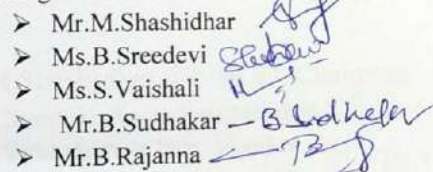 ➤ Mr.M.Shashidhar
➤ Ms.B.Sreedevi
➤ Ms.S.Vaishali
➤ Mr.B.Sudhakar – B
➤ Mr.B.Rajanna